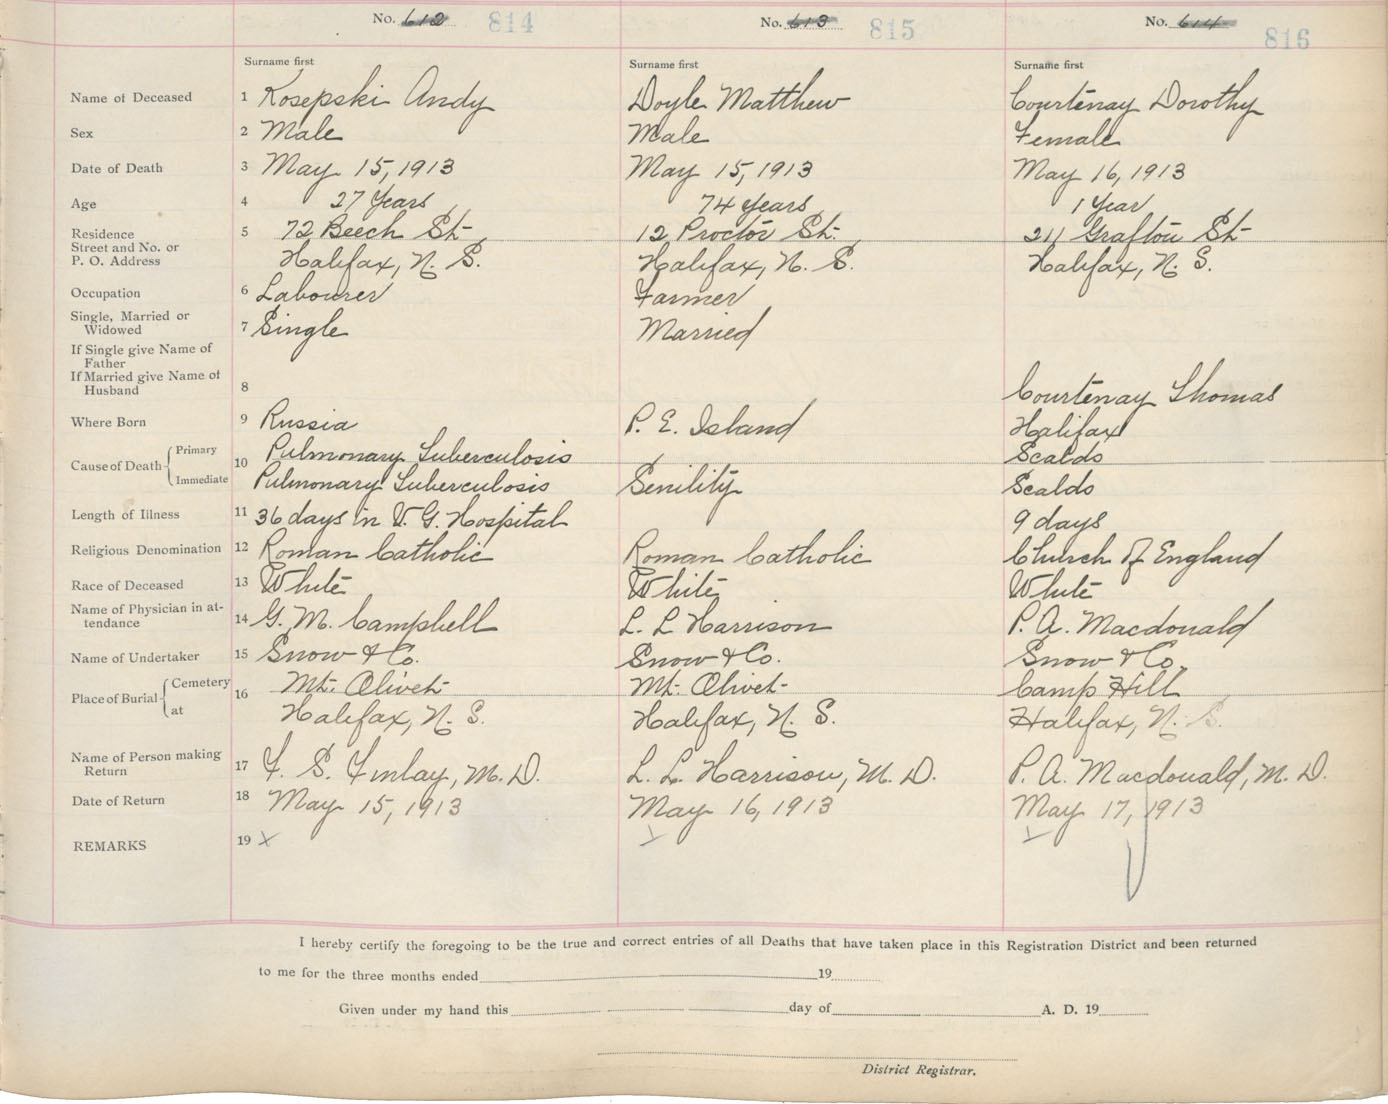 No. 612 814 No. 613 815 No. 614 816
Surname first Surname first Surname first
Name of Deceased 1 Kosepski Andy Doyle Matthew Courtenay Dorothy
Sex 2 Male Male Female
Date of Death 3 May 15, 1913 May 15, 1913 May 16, 1913
Age 4 27 Years 74 Years 1 Year
Residence 5 72 Beech St 12 Proctor St. 211 Grafton St
Street and No. or
P. O. Address Halifax, N. S. Halifax, N. S. Halifax, N. S.
Occupation 6 Labourer Farmer
Single, Married or
Widowed 7 Single Married
If Single give Name of
Father
If Married give Name of
Husband 8 Courtenay Thomas
Where Born 9 Russia P. E. Island Halifax
Cause of Death Primary 10 Pulmonary Tuberculosis Scalds
Immediate Pulmonary Tuberculosis Senility Scalds
Length of Illness 11 36 days in V. G. Hospital 9 days
Religious Denomination 12 Roman Catholic Roman Catholic Church of England
Race of Deceased 13 White White White
Name of Physician in at-
tendance 14 G. M. Campbell L. L Harrison P. A. Macdonald
Name of Undertaker 15 Snow & Co. Snow & Co. Snow & Co.
Place of Burial Cemetery 16 Mt. Olivet Mt. Olivet Camp Hill
at Halifax, N. S. Halifax, N. S. Halifax, N. S.
Name of Person making
Return 17 F. S. Finlay, M. D. L. L. Harrison, M. D. P. A. Macdonald, M. D.
Date of Return 18 May 15, 1913 May 16, 1913 May 17, 1913
REMARKS 19 X
I hereby certify the foregoing to be the true and correct entries of all Deaths that have taken place in this Registration District and been returned
to me for the three months ended 19
Given under my hand this day of A. D. 19
District Registrar.